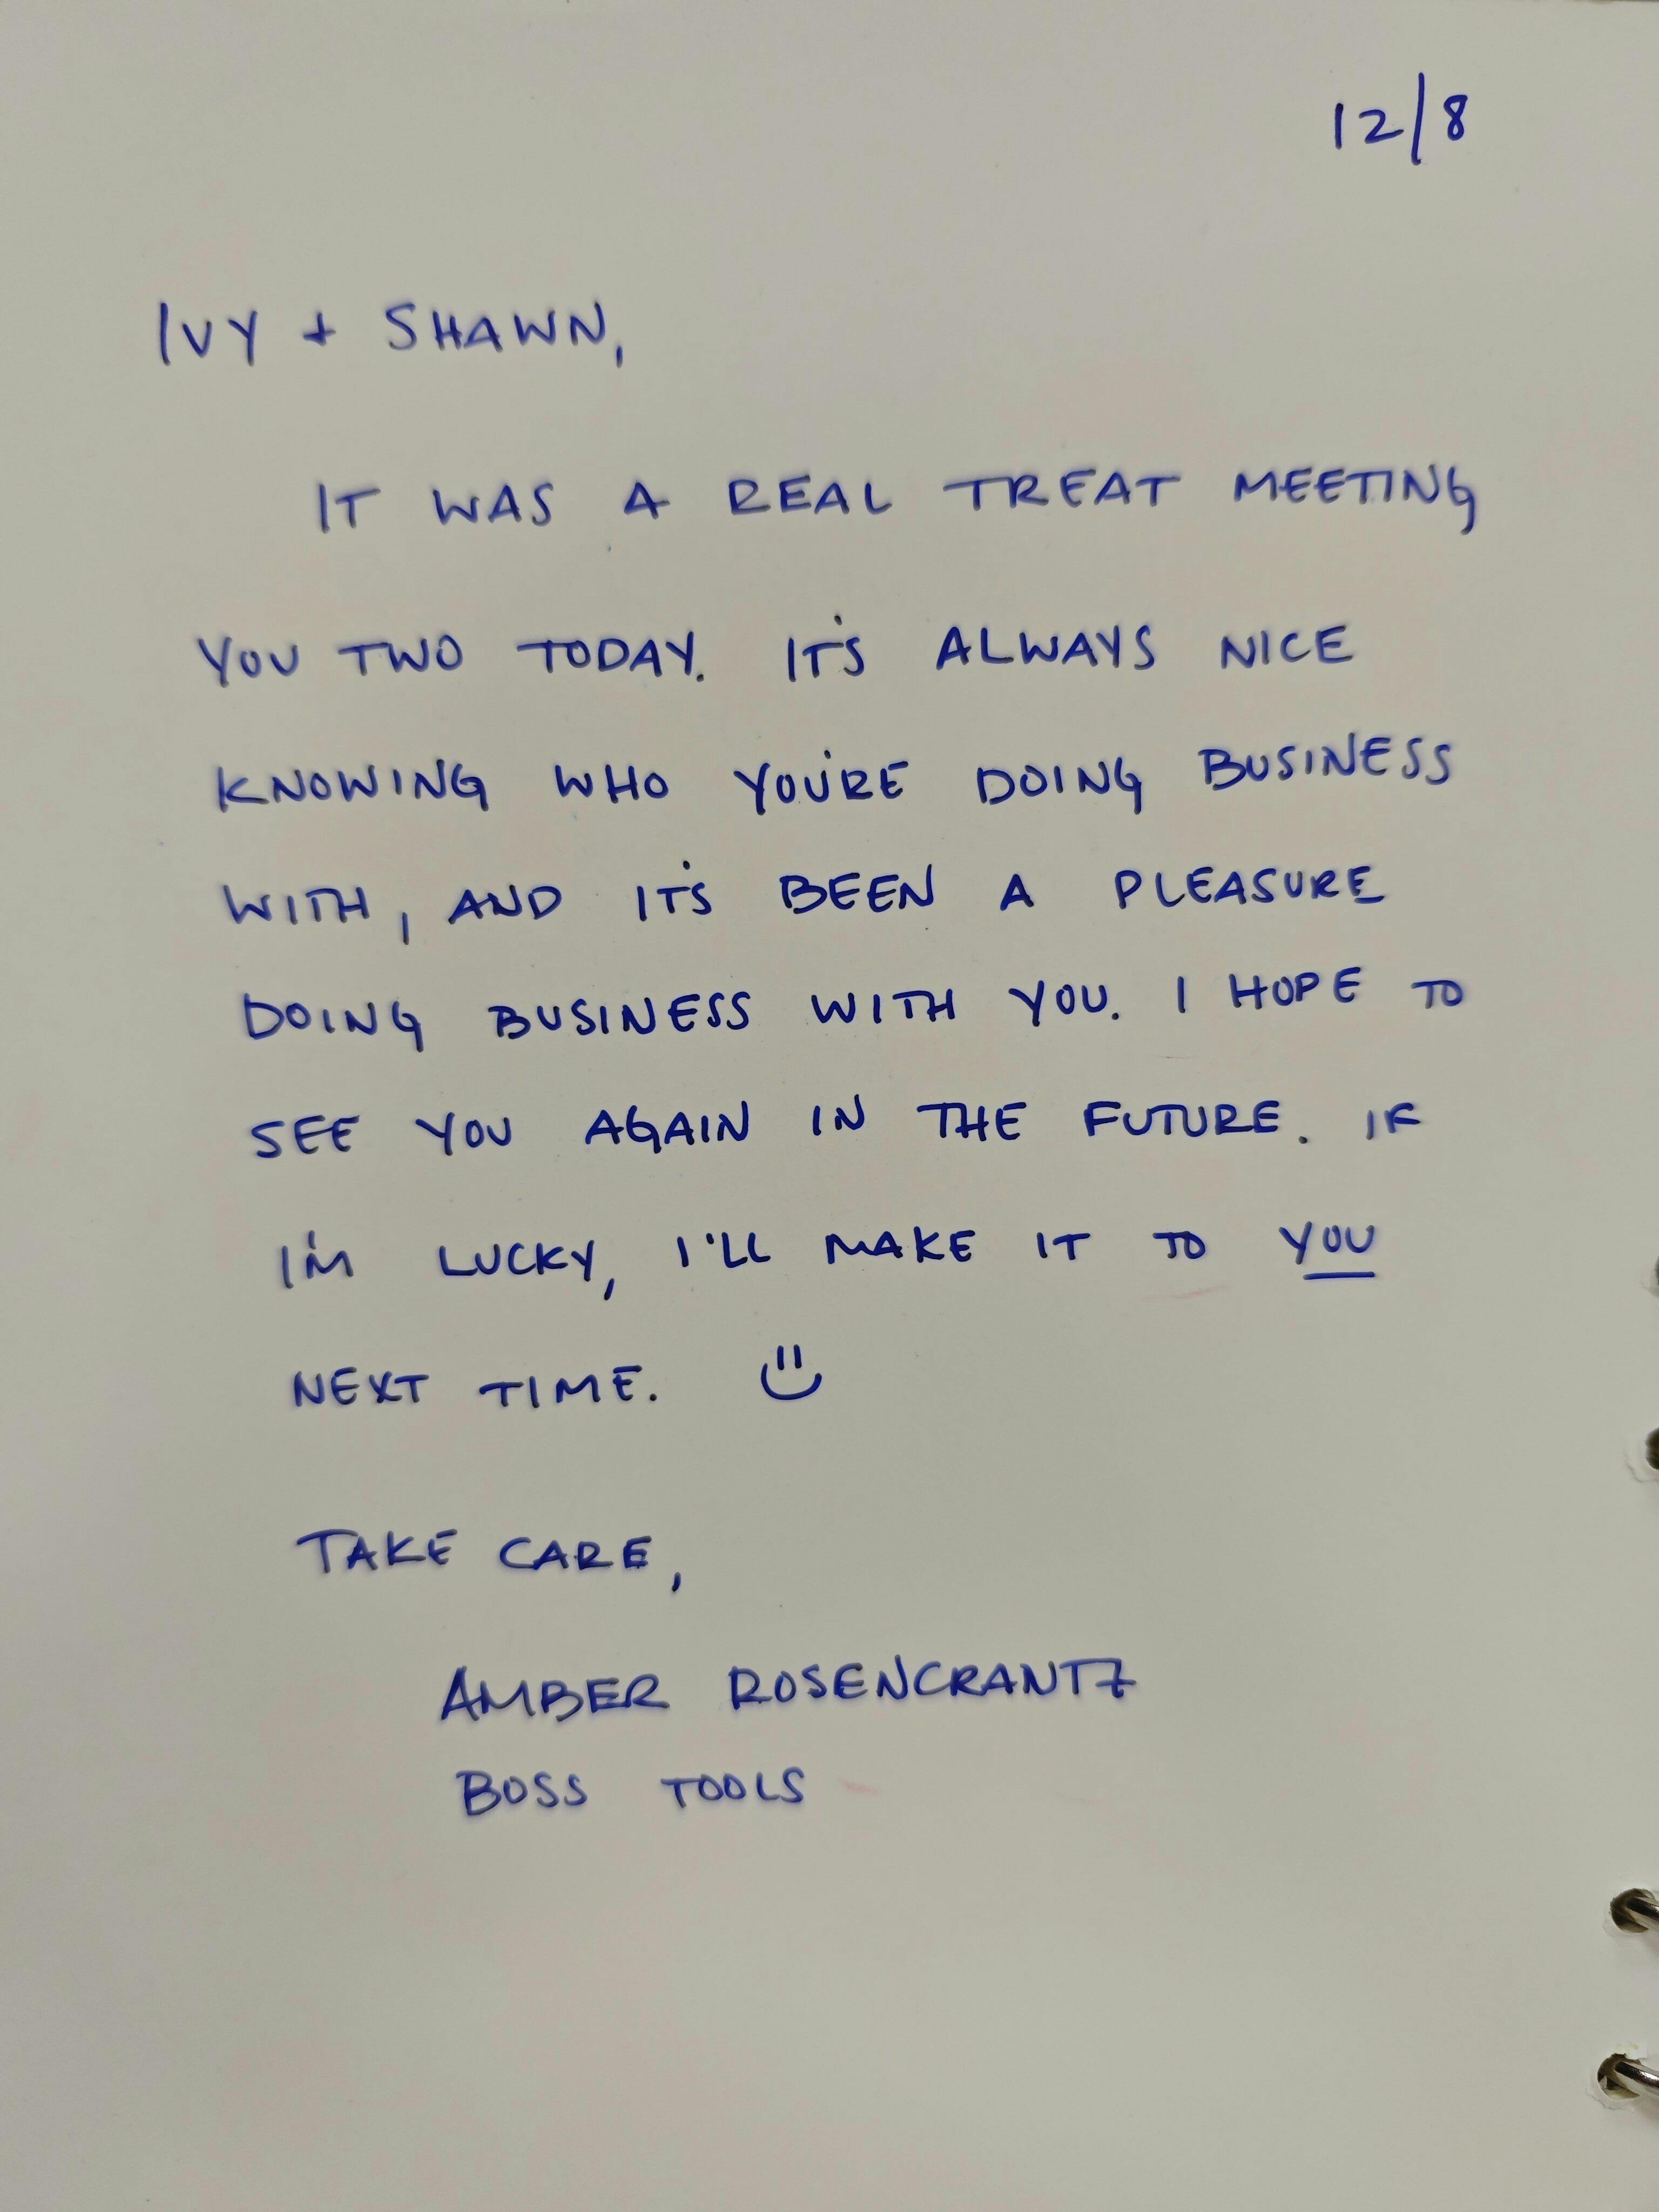 12/8
IVY + SHAWN,
IT WAS A REAL TREAT MEETING
YOU TWO TODAY. IT'S ALWAYS NICE
KNOWING WHO YOU'RE DOING BUSINESS
WITH, AND IT'S BEEN A PLEASURE
DOING BUSINESS WITH YOU. I HOPE TO
SEE YOU AGAIN IN THE FUTURE. IF
I'M LUCKY, I'LL MAKE IT TO YOU
NEXT TIME.
TAKE CARE,
AMBER ROSENCRANTZ
BOSS TOOLS